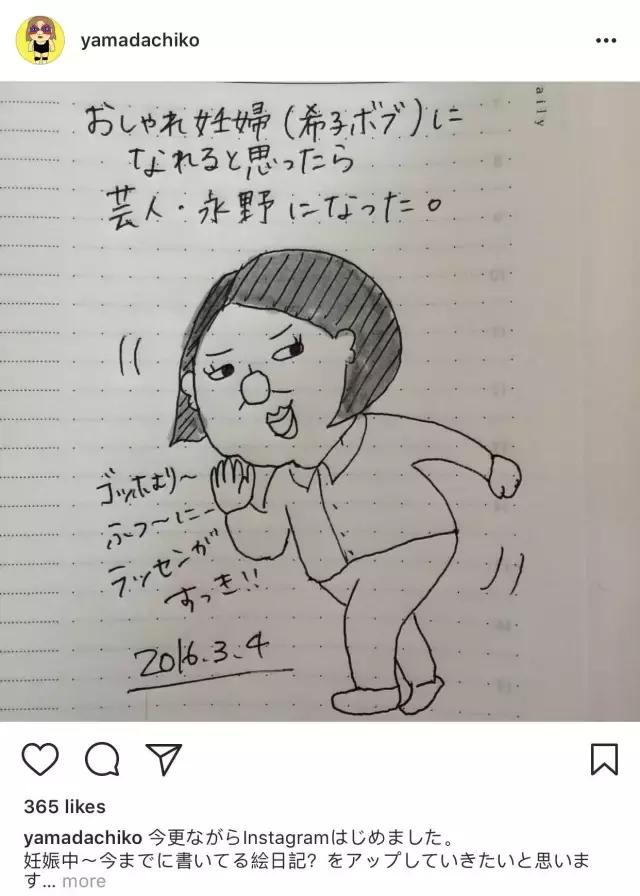 yamadachiko
aily
おしゃれ妊婦(希子ボブ)に
なれると思ったら
芸人・永野になった。
ゴッホより〜
ふつ〜にー
ラッセンが
すっき!!
2016.3.4
365 likes
yamadachiko 今更ながらInstagramはじめました。
妊娠中〜今までに書いてる絵日記？をアップしていきたいと思いま
す... more